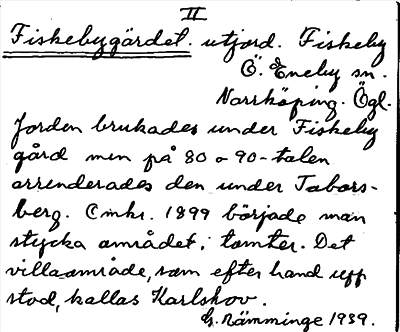 II
Fiskebygärdet. utjord. Fiskeby
Ö. Eneby sn.
Norrköping. Ögl.
Jorden brukades under Fiskeby
gård men på 80 o 90-talen
arrenderades den under Tabors-
berg. Omkr. 1899 började man
stycka området i tomter. Det
villaområde, som efter hand upp
stod, kallas Karlshov.
G. Rämminge 1939.